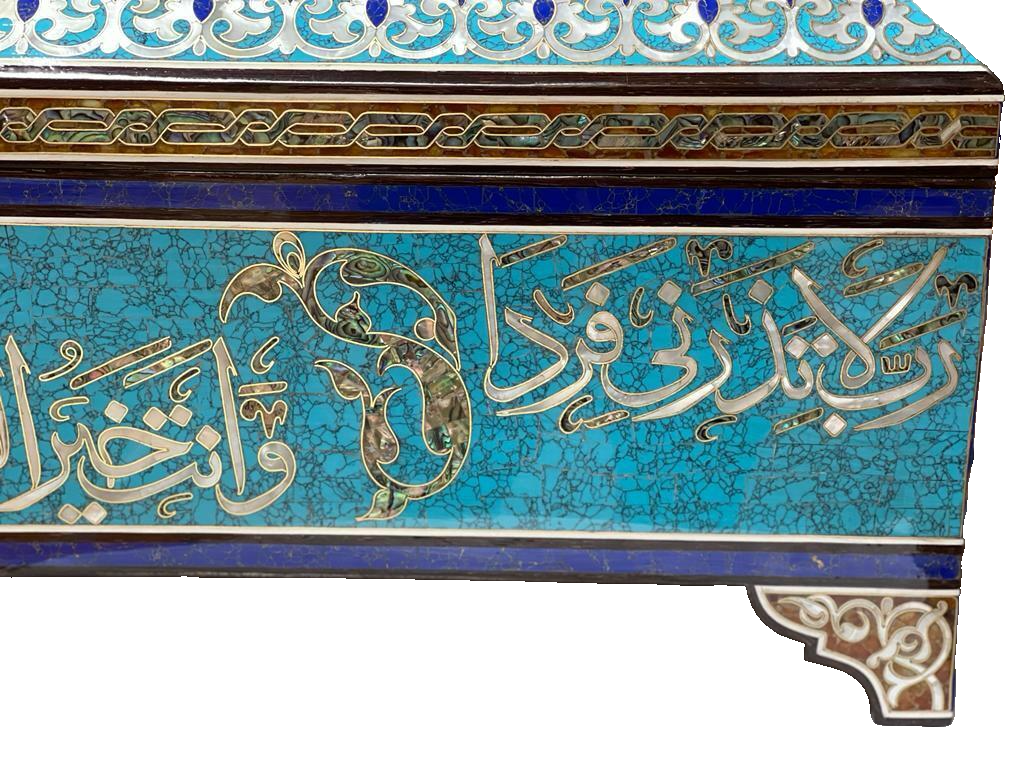 رَبِّ لَا تَذَرْنِى فَرْدًا
وَاَنْتَ خَيْرُ